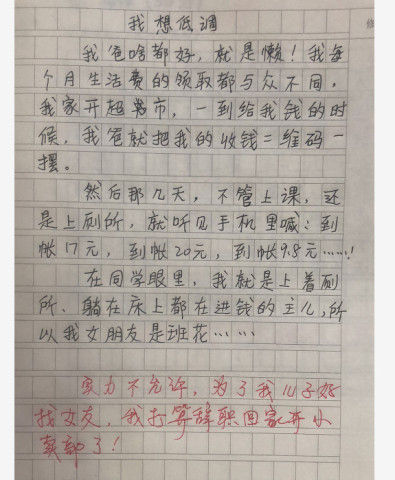 我想低调
我爸啥都好，就是懒！我每
个月生活费的领取都与众不同，
我家开超市，一到给我钱的时
候，我爸就把我的收钱二维码一
摆。
然后那几天，不管上课，还
是上厕所，就听见手机里喊：到
帐17元，到帐20元，到帐9.8元……！
在同学眼里，我就是上着厕
所、躺在床上都在进钱的主儿，所
以我女朋友是班花……
实力不允许，为了我儿子好
找女友，我打算辞职回家开小
卖部了！